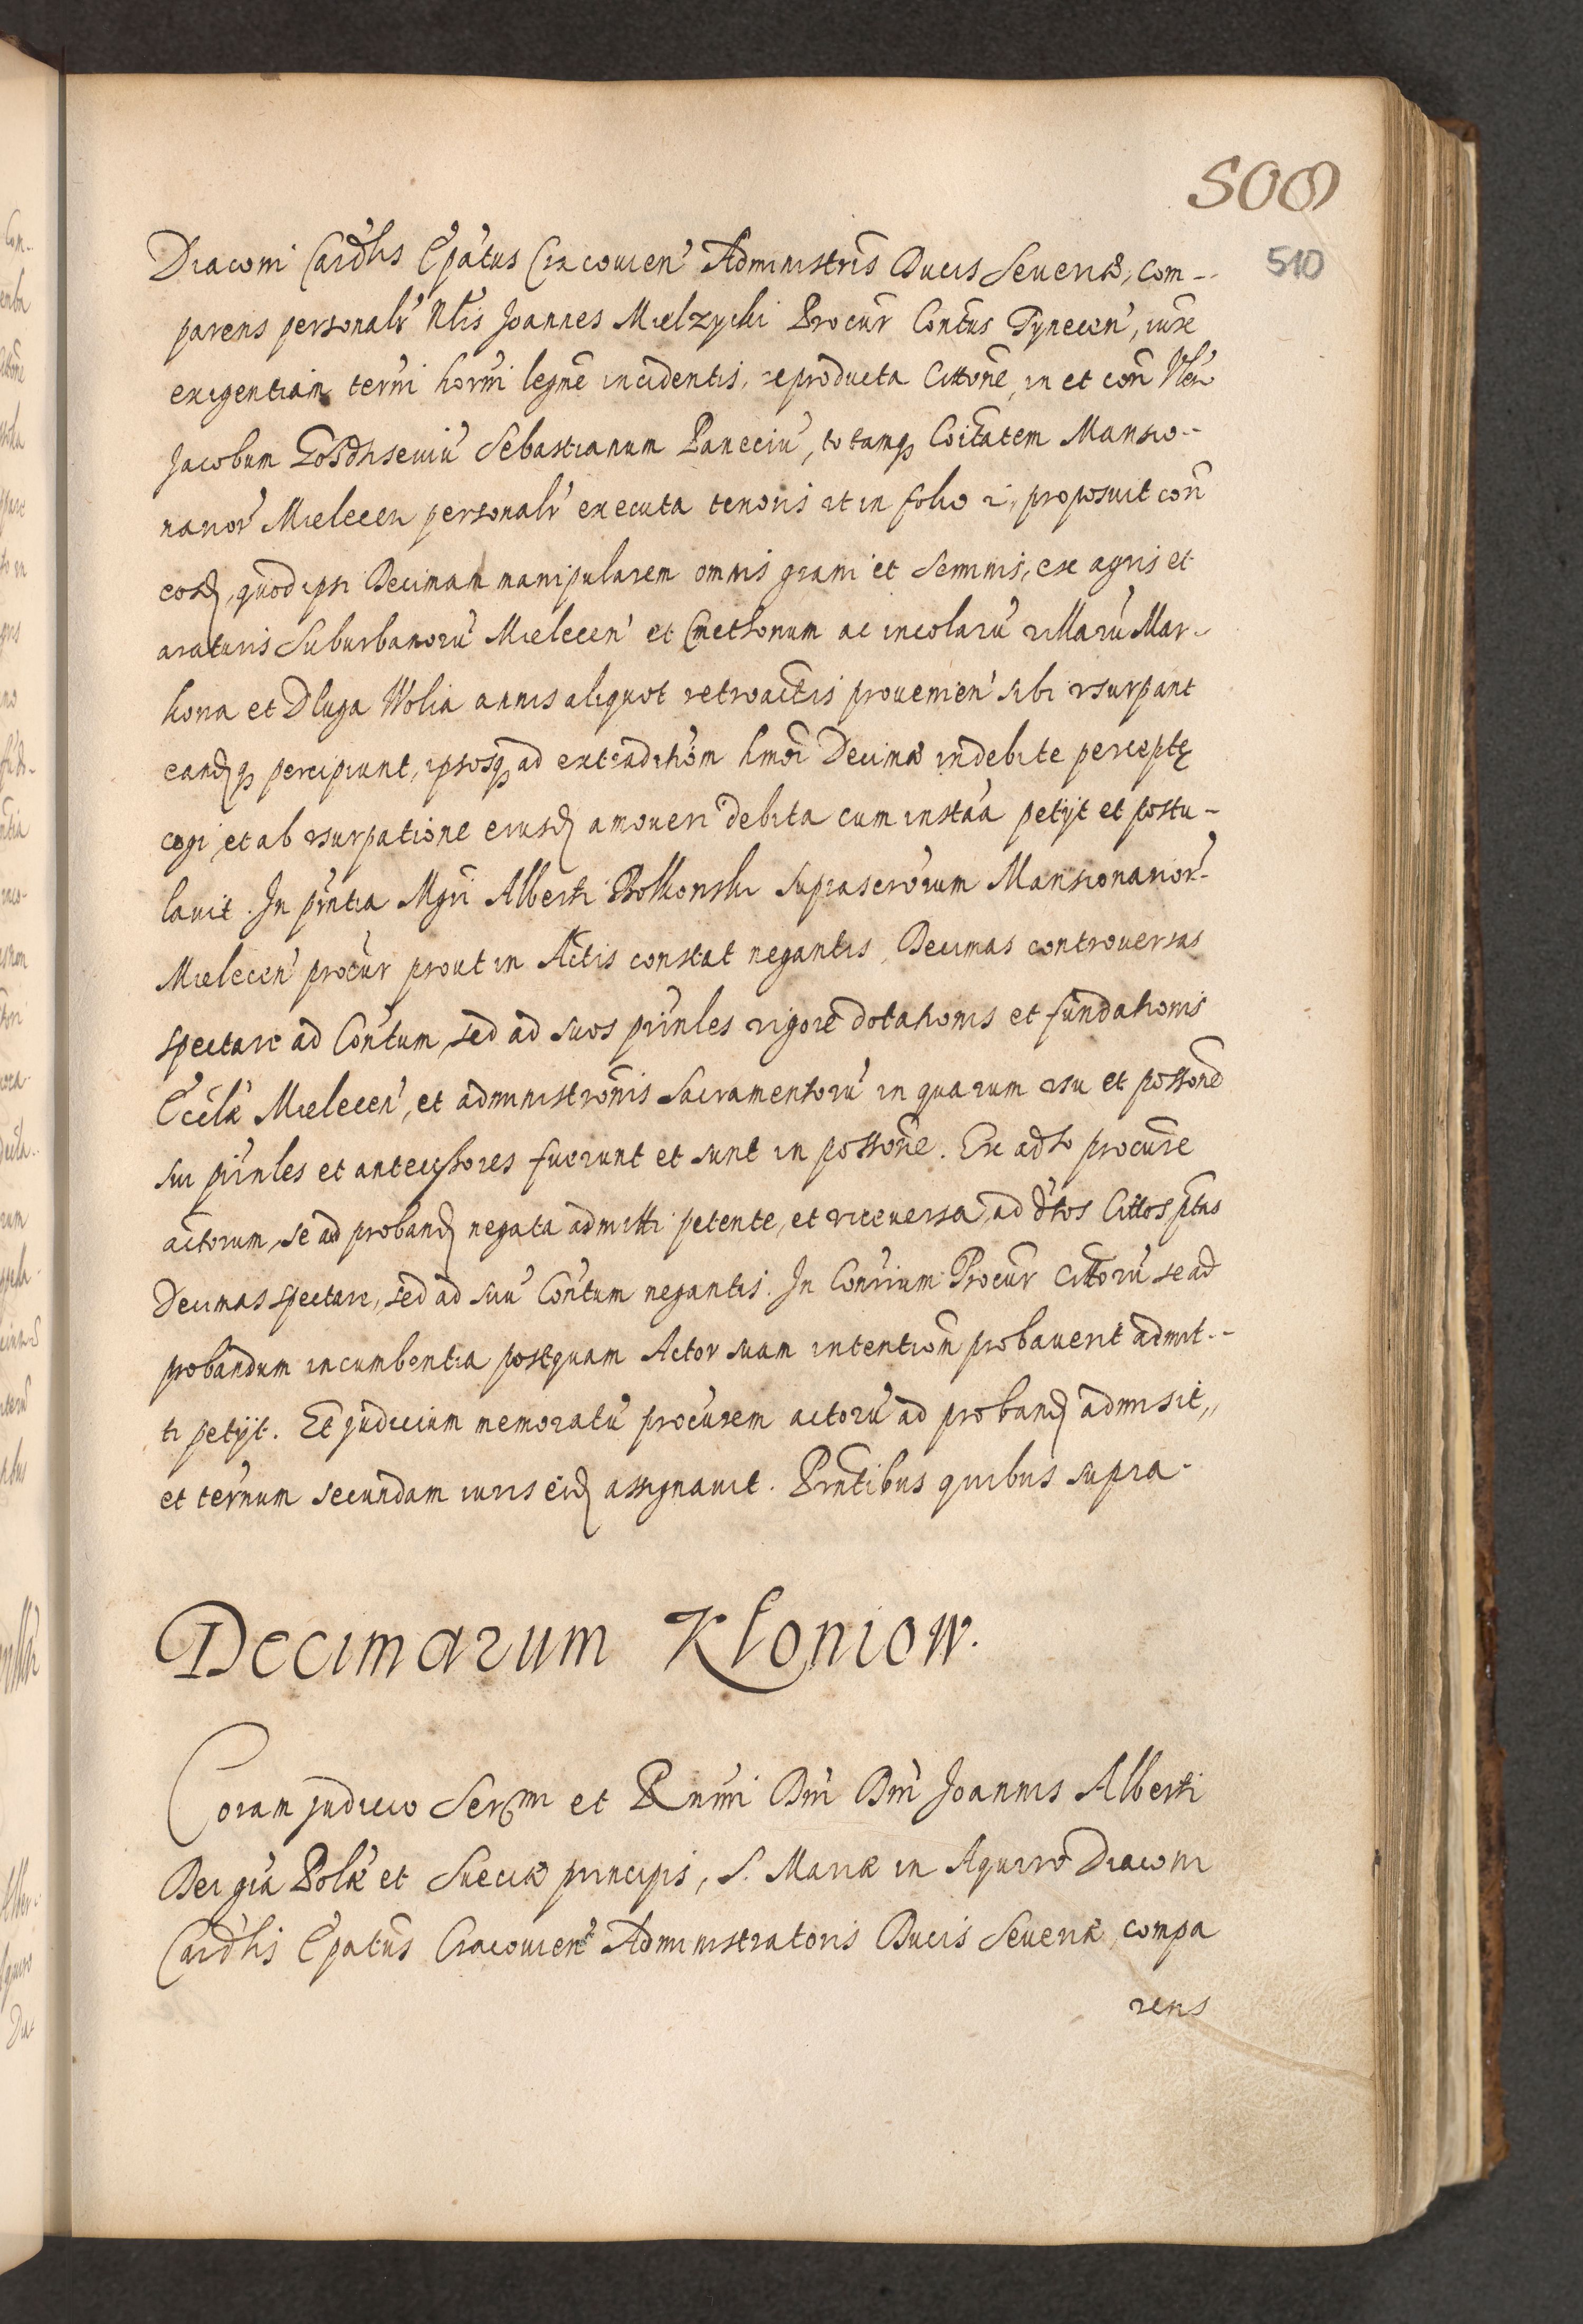 500
510
Diaconi Cardlis Epatus Cracouien' Administris Ducis Seueriæ, com-
parens personalr Nlis Joannes Mielzycki Procur Contus Tynecen', iure
exigentiam termi hormi legme incidentis, reproducta Cittone, in et con Nle
Jacobum Sebastianum Paneciu', totamq Coitatem Mansio-
narior' Mielecen personalr executa tenoris ut in folio 2, proposuit con
eosd, quod ipsi Decimam manipularem omnis grani et Seminis, ex agris et
araturis Suburbanoru' Mielecen' et Cmethonum ac incolaru' villaru' Mar-
kona et Dluga Wolia annis aliquot retroactis prouenien' sibi vsurpant
eandq percipiunt, ipsosq ad extraditiom hmoi Decimæ indebite perceptę
cogi et ab vsurpatione eiusd amoueri debita cum instaa petijt et postu-
lauit. In pntia Mgri Alberti suprascrorum Mansionarior'
Mielecen' procur prout in Actis constat negantis, Decimas controuersas
spectare ad Contum, sed ad suos prinles vigore dotationis et fundationis
Ecclæ Mielecen', et administronis Sacramentoru' in quarum vsu et possone
sui prinles et antecessores fuerunt et sunt in possone. Ex adso procure
actorum, se ad proband negata admitti petente, et viceuersa, ad dtos Cittos ptas
Decimas spectare, sed ad suu' Contum negantis. In Conrium Procur Cittoru' se ad
probandum incumbentia postquam Actor suam intentiom probauerit admit-
ti petijt. Et judicium memoratu' procurem actoru' ad proband admisit,
et termum secundam iuris eid assignauit. Prntibus quibus supra-
Decimarum Kloniow.
Coram judicio Sermi et Rnmi Dni Dni Joannis Alberti
Dei gra Polæ et Sueciæ principis, S. Mariæ in Aquiro Diaconi
Cardlis Epatus Cracouien' Administratoris Ducis Seueriæ, compa
rens